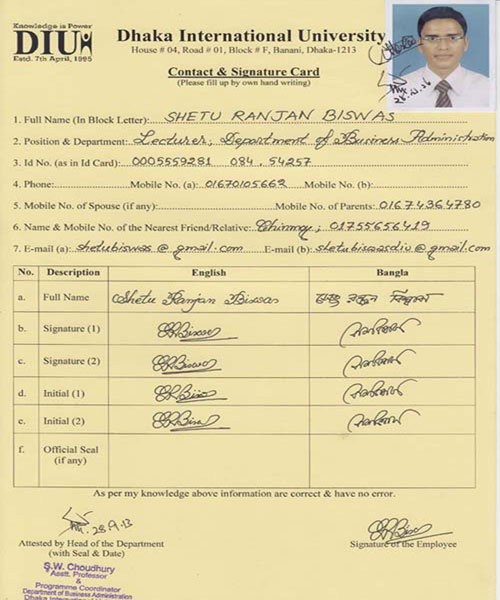 Knowledge is Power
DIU
Estd. 7th April, 1995
Dhaka International University
House # 04, Road # 01, Block # F, Banani, Dhaka-1213
Contact & Signature Card
(Please fill up by own hand writing)
1. Full Name (In Block Letter): SHETU RANJAN BISWAS
2. Position & Department: Lecturer, Department of Business Administration
3. Id No. (as in Id Card): 0005559281 084, 54257
4. Phone: Mobile No. (a): 01670105662 Mobile No. (b):
5. Mobile No. of Spouse (if any): Mobile No. of Parents: 01674364780
6. Name & Mobile No. of the Nearest Friend/Relative: Chinmoy; 01755656419
7. E-mail (a): shetubiswas@gmail.com E-mail (b): shetubiswasdiu@gmail.com
No. Description English Bangla
a. Full Name Shetu Ranjan Biswas
b. Signature (1) Biswas
c. Signature (2) Biswas
d. Initial (1)
e. Initial (2)
f. Official Seal
(if any)
As per my knowledge above information are correct & have no error.
28.9.13
Attested by Head of the Department
(with Seal & Date)
Signature of the Employee
S.W. Choudhury
Asstt. Professor
&
Programme Coordinator
Department of Business Administration